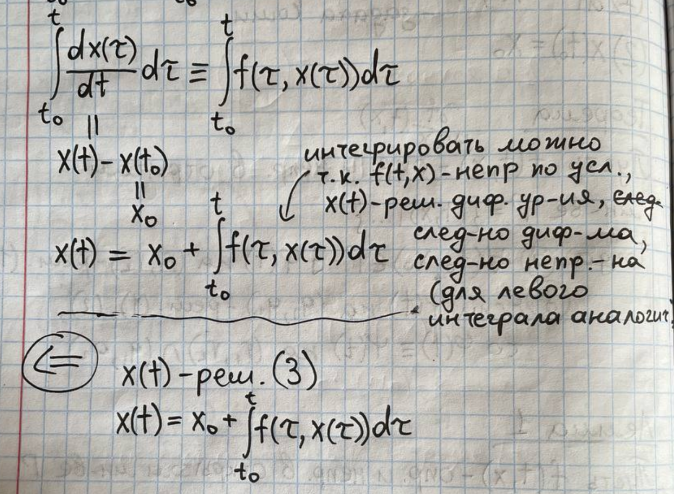 ∫_{t₀}^{t} dx(τ)/dt dτ ≡ ∫_{t₀}^{t} f(τ, x(τ))dτ
||
x(t) - x(t₀)
||
x₀
интегрировать можно
т.к. f(t,x) - непр по усл.,
x(t) - реш. диф. ур-ия, след-
след-но диф-ма,
x(t) = x₀ + ∫_{t₀}^{t} f(τ, x(τ))dτ
след-но непр.-на
(для левого
интеграла аналогич.)
⇐
x(t) - реш. (3)
x(t) = x₀ + ∫_{t₀}^{t} f(τ, x(τ))dτ